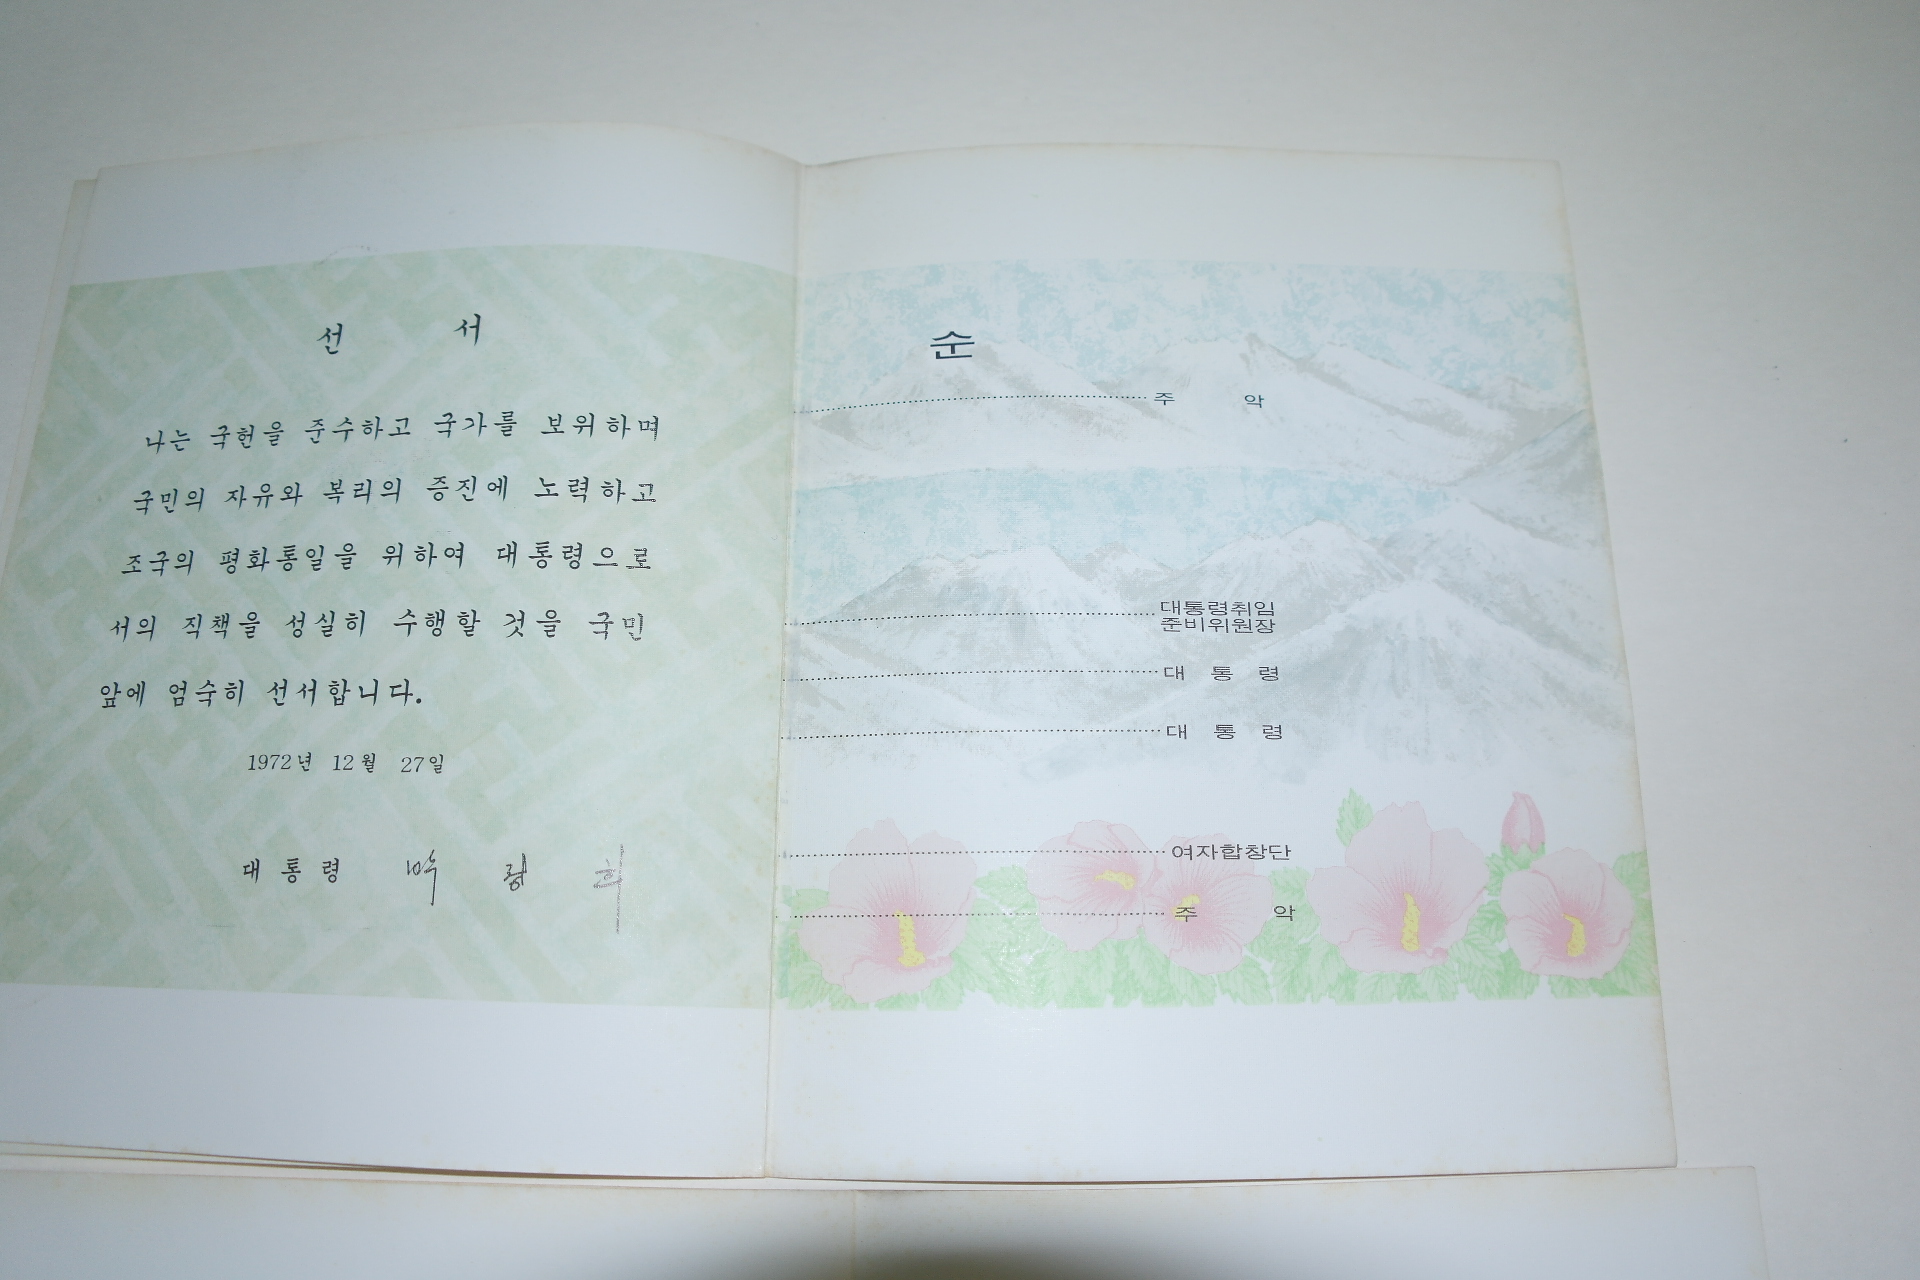 선 서
나는 국헌을 준수하고 국가를 보위하며
국민의 자유와 복리의 증진에 노력하고
조국의 평화통일을 위하여 대통령으로
서의 직책을 성실히 수행할 것을 국민
앞에 엄숙히 선서합니다.
1972년 12월 27일
대통령
순
주 악
대통령취임
준비위원장
대 통 령
대 통 령
여자합창단
주 악